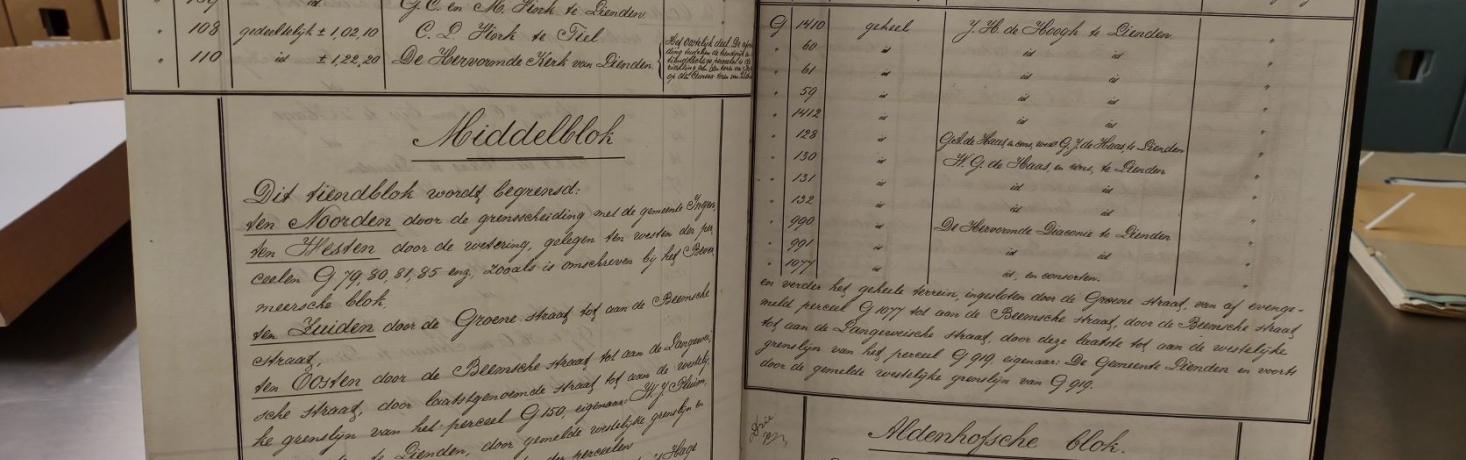 109 id G. C. en M. Stork te Lienden
" 108 gedeeltelijk ± 1,02,10 C. L. Stork te Tiel
" 110 id ± 1,22,20 De Hervormde Kerk van Lienden
Het oostelijk deel. De
Middelblok
Dit tiendblok wordt begrensd:
ten Noorden door de grensscheiding met de gemeente Ingen,
ten Westen door de wetering, gelegen ten westen der per
ceelen G 79, 80, 81, 85 enz, zooals is omschreven bij het
meersche blok.
ten Zuiden door de Groene straat tot aan de Beemsche
straat,
ten Oosten door de Beemsche straat tot aan de Langewei
sche straat, door laatstgenoemde straat tot aan de westelij
ke grenslijn van het perceel G 150, eigenaar: W. J.
te Lienden, door gemelde westelijke grenslijn en
der perceelen
Hage
G 1410 geheel J. H. de Hoogh te Lienden "
" 60 id id id "
" 61 id id id "
" 59 id id id "
" 1412 id id id "
" 128 id de Haas en cons, wed G. J. de Haas, te Lienden "
" 130 id W. G. de Haas, en cons, te Lienden "
" 131 id id id "
" 132 id id id "
" 990 id De Hervormde Diaconie te Lienden "
" 991 id id id "
" 1077 id id, en consorten. "
en verder het geheele terrein, ingesloten door de Groene straat, van af evenge-
meld perceel G 1077 tot aan de Beemsche straat, door de Beemsche straat
tot aan de Langeweische straat, door deze laatste tot aan de westelijke
grenslijn van het perceel G 919 eigenaar: De Gemeente Lienden en voorts
door de gemelde westelijke grenslijn van G 919.
Aldenhofsche blok.